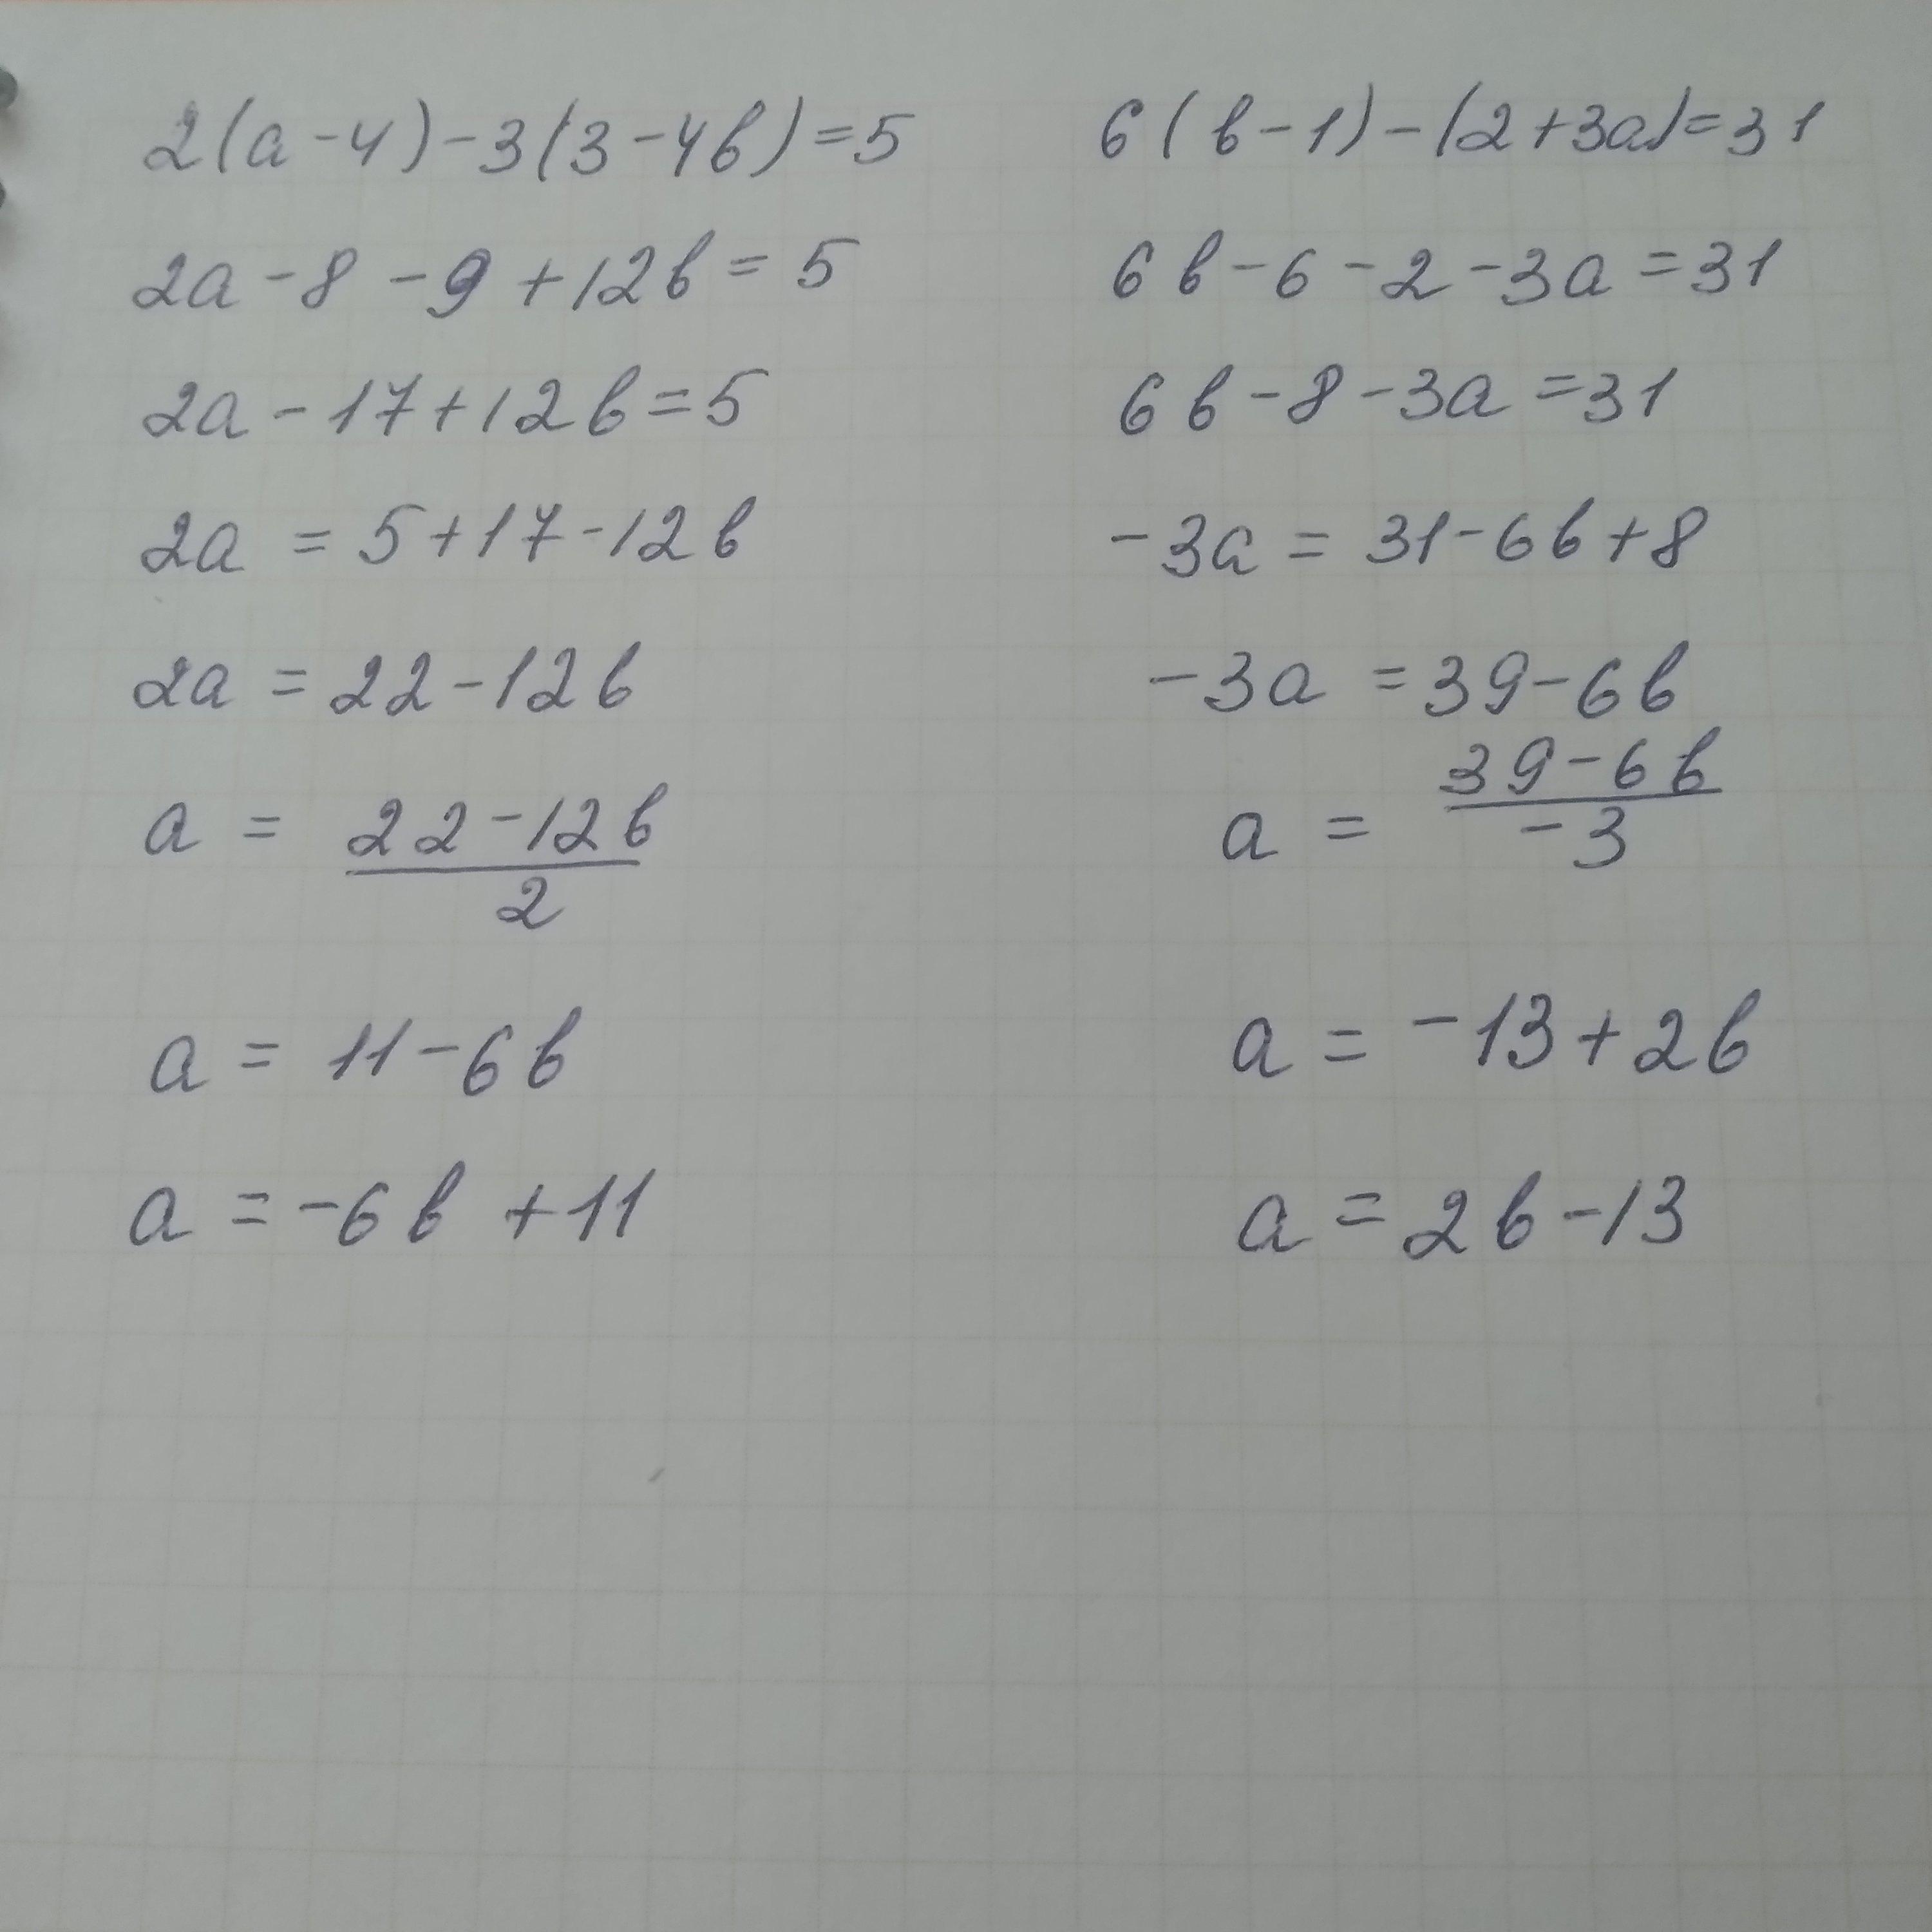 2(a-4)-3(3-4b)=5
2a-8-9+12b=5
2a-17+12b=5
2a=5+17-12b
2a=22-12b
a=22-12b
2
a=11-6b
a=-6b+11
6(b-1)-(2+3a)=31
6b-6-2-3a=31
6b-8-3a=31
-3a=31-6b+8
-3a=39-6b
a=39-6b
-3
a=-13+2b
a=2b-13